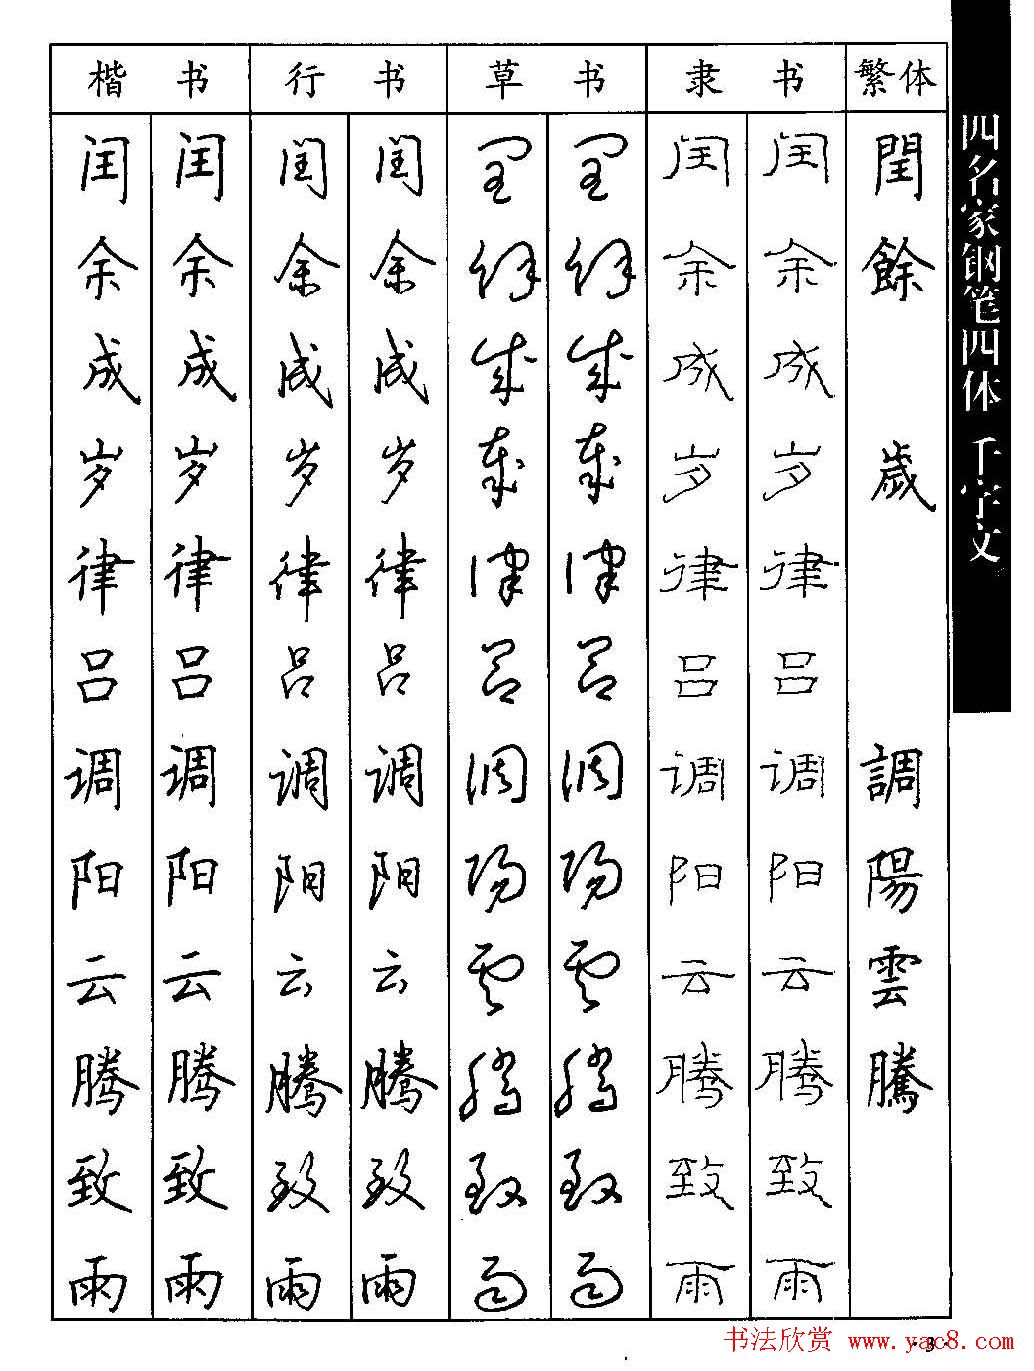 楷书 行书 草书 隶书 繁体
闰 闰 闰 闰 闰 闰 闰 闰 閏
余 余 余 余 余 余 余 余 餘
成 成 成 成 成 成 成 成
岁 岁 岁 岁 岁 岁 岁 岁 歲
律 律 律 律 律 律 律 律
吕 吕 吕 吕 吕 吕 吕 吕
调 调 调 调 调 调 调 调 調
阳 阳 阳 阳 阳 阳 阳 阳 陽
云 云 云 云 云 云 云 云 雲
腾 腾 腾 腾 腾 腾 腾 腾 騰
致 致 致 致 致 致 致 致
雨 雨 雨 雨 雨 雨 雨 雨
四名家钢笔四体 千字文
·3·
书法欣赏 www.yac8.com